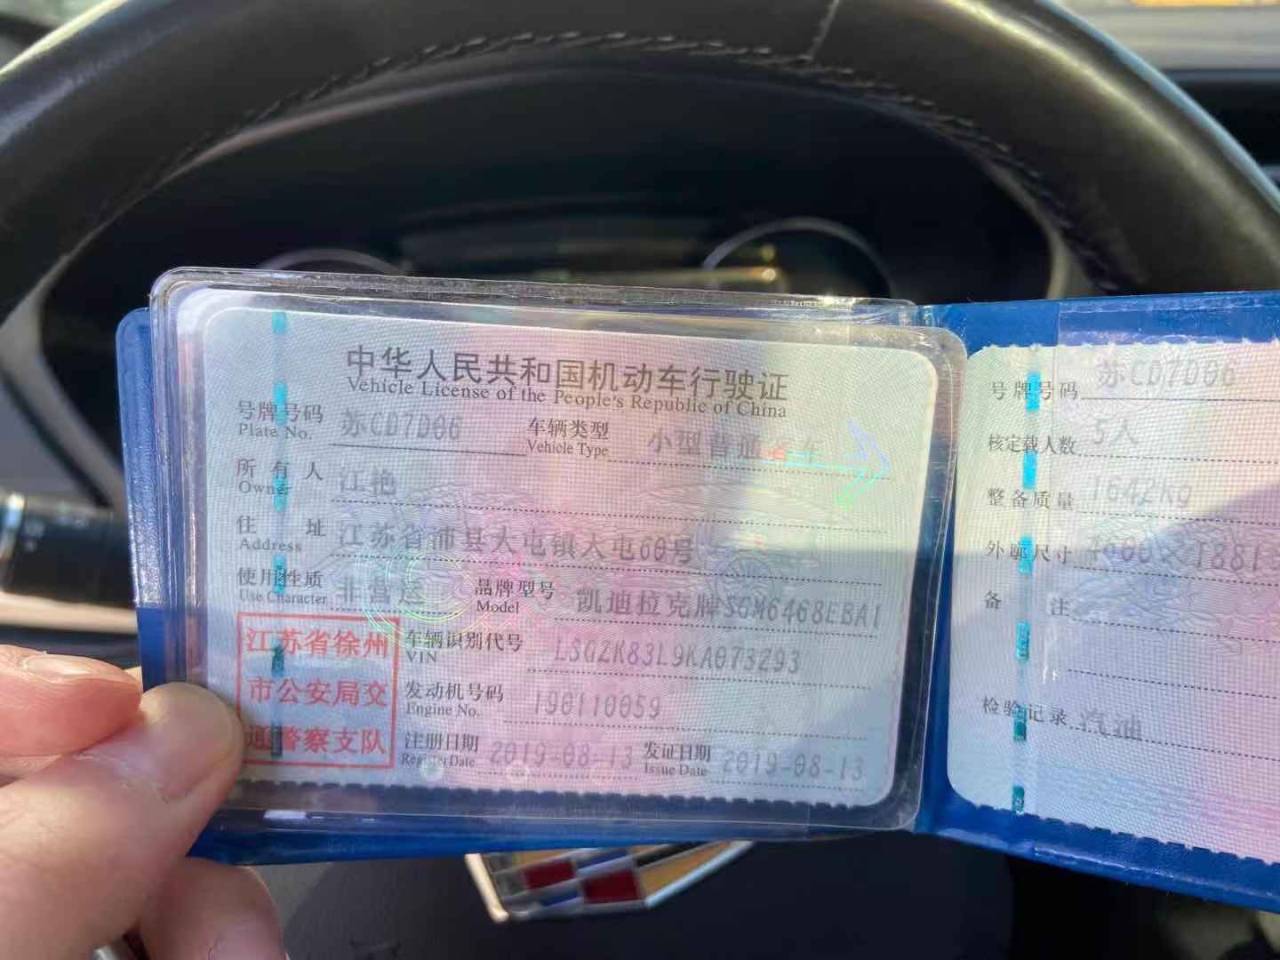 中华人民共和国机动车行驶证
Vehicle License of the People's Republic of China
号牌号码 苏CD7D06 车辆类型 小型普通客车
Plate No. Vehicle Type
所有人 江艳
Owner
住址 江苏省沛县大屯镇大屯60号
Address
使用性质 非营运 品牌型号 凯迪拉克牌SGM6468EBA1
Use Character Model
江苏省徐州
市公安局交
通警察支队
车辆识别代号 LSGZK83L9KA073293
VIN
发动机号码 190110059
Engine No.
注册日期 2019-08-13 发证日期 2019-08-13
Register Date Issue Date
号牌号码 苏CD7D06
核定载人数 5人
整备质量 1642kg
外廓尺寸 4600×1881
备注
检验记录 汽油